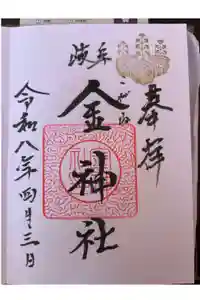 奉拝
こがね
金神社
令和八年四月三日